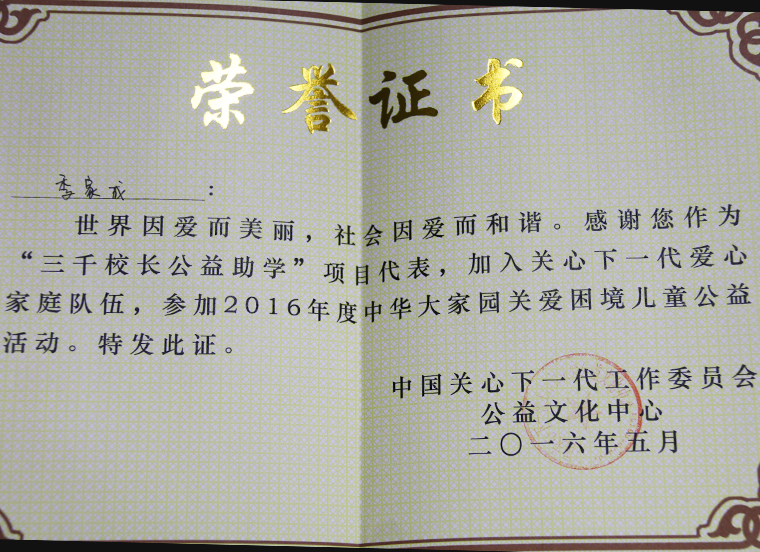 荣誉证书
季家成：
世界因爱而美丽，社会因爱而和谐。感谢您作为
“三千校长公益助学”项目代表，加入关心下一代爱心
家庭队伍，参加2016年度中华大家园关爱困境儿童公益
活动。特发此证。
中国关心下一代工作委员会
公益文化中心
二〇一六年五月